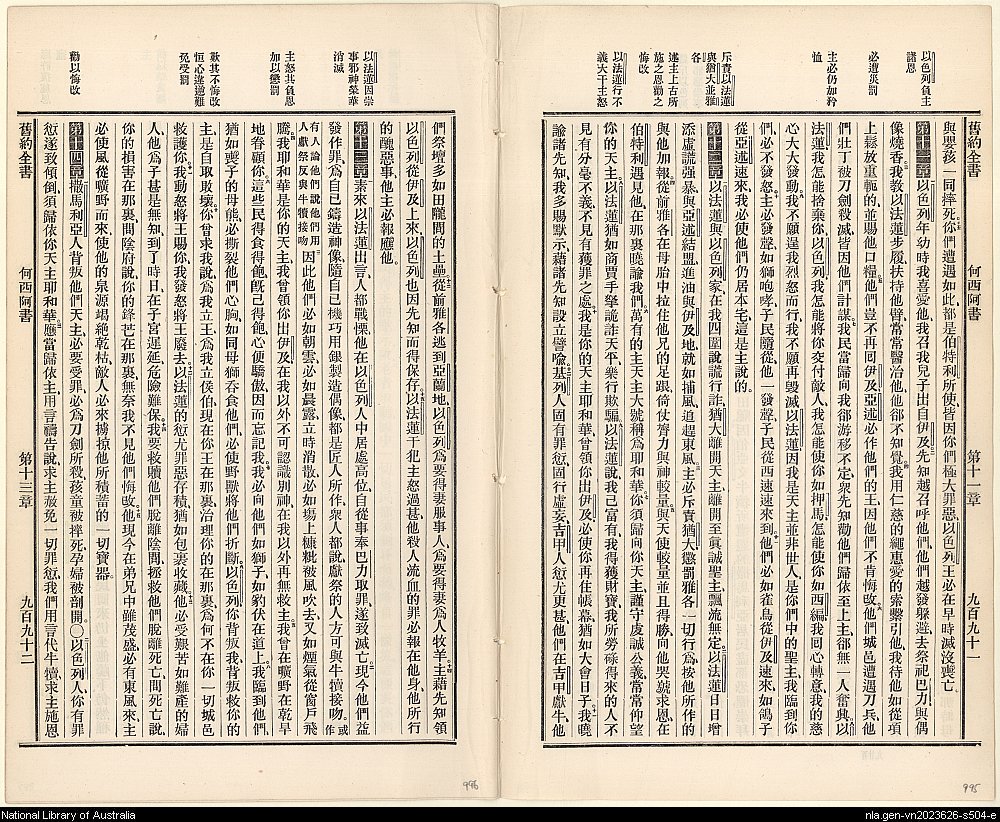 以色列負主
諸恩
必遭災罰
主必仍加矜
恤
斥責以法蓮
與猶大並雅
各
述主上古所
施之恩勸之
悔改
以法蓮行不
義大干主怒
舊約全書 何西阿書 第十一章 九百九十一
與嬰孩一同摔死你們遭遇如此都是伯特利所使皆因你們極大罪惡以色列王必在早時滅沒喪亡
第十一章以色列年幼時我喜愛他我召我兒子出自伊及先知越召呼他們他們越發躲避去祭祀巴力與偶
像燒香我教以法蓮步履扶持他臂常常醫治他他卻不知覺我用仁慈的繩惠愛的索繫引他我待他如從項
上鬆放重軛的並賜他口糧他們豈不再回伊及亞述必作他們的王因他們不肯悔改他們城邑遭遇刀兵他
們壯丁被刀劍殺滅皆因他們計謀我民當歸向我卻游移不定衆先知勸他們歸依至上主卻無一人奮興以
法蓮我怎能捨棄你以色列我怎能將你交付敵人我怎能使你如押馬怎能使你如西編我回心轉意我的慈
心大大發動我不願逞我烈怒而行我不願再毀滅以法蓮因我是天主並非世人是你們中的聖主我臨到你
們必不發怒主必發聲如獅咆哮子民隨從他一發聲子民從西速速來到他們必如雀鳥從伊及速來如鴿子
從亞述速來我必使他們仍居本宅這是主說的
第十二章以法蓮與以色列家在我四圍說謊行詐猶大離開天主離開至眞誠聖主飄流無定以法蓮日日增
添虛謊强暴與亞述結盟進油與伊及地就如捕風追趕東風主必斥責猶大懲罰雅各一切行爲按他所作的
與他加報從前雅各在母胎中拉住他兄的足跟倚仗膂力與神較量與天使較量並且得勝向他哭號求恩在
伯特利遇見他在那裏曉諭我們萬有的主天主大號稱爲耶和華你須歸向你天主謹守處誠公義常常仰望
你的天主以法蓮如商賈手拏詭詐天平樂行欺騙以法蓮說我已富有我得獲財寶我所勞碌得來的人不
見有分毫不義不見有獲罪之處我是你的天主耶和華曾領你出伊及必使你再住帳幕猶如大會日子我曉
諭諸先知我多賜默示藉諸先知設立譬喩基列人固有罪愆固行虛妄吉甲人愆尤更甚他們在吉甲獻牛他
以法蓮因崇
事邪神榮華
消滅
主怒其負恩
加以懲罰
歎其不悔改
恒心逡遁難
免受罰
勸以悔改
們祭壇多如田隴間的土壘從前雅各逃到亞蘭地以色列爲要得妻服事人爲要得妻爲人牧羊主藉先知領
以色列從伊及上來以色列也因先知而得保存以法蓮干犯主怒過甚他殺人流血的罪必報在他身他所行
的醜惡事他主必報應他
第十三章素來以法蓮出言人都戰慄他在以色列人中居處高位自從事奉巴力取罪遂致滅亡現今他們益
發作罪爲自己鑄造神像隨自己機巧用銀製造偶像都是匠人所作衆人都說獻祭的人人方可與牛犢接吻或作
有人論他們說他們用人獻祭反與牛犢接吻因此他們必如朝雲必如晨露立時消散必如塲上糠粃被風吹去又如煙氣從窗戶飛
騰我耶和華是你的天主我曾領你出伊及在我以外不可認識別神在我以外再無救主我曾在曠野在乾旱
地眷顧你這些民得食得飽旣已得飽心便驕傲因而忘記我我必向他們如獅子如豹伏在道上我臨到他們
猶如喪子的母熊必撕裂他們心胸如同母獅吞食他們必使野獸將他們折斷以色列你背叛我背叛救你的
主是自取敗壞你曾求我說爲我立王爲我立侯伯現在你王在那裏治理你的在那裏爲何不在你一切城邑
救護你我動怒將王賜你我發怒將王廢去以法蓮的愆尤罪惡存積猶如包裹收藏他必受艱苦如難產的婦
人他爲子甚是無知到了時日在子宮遲延危險難保我要救贖他們脫離陰間拯救他們脫離死亡間死亡說
你的損害在那裏間陰府說你的鋒芒在那裏無奈我不見他們悔改他現今在弟兄中雖茂盛必有東風來主
必使風從曠野而來使他的泉源竭絶乾枯敵人必來擄掠他所積蓄的一切寶器
第十四章撒馬利亞人背叛他們天主必要受罪必爲刀劍所殺孩童被摔死孕婦被剖開〇以色列人你有罪
愆遂致傾倒須歸依你天主耶和華應當歸依主用言禱告說求主赦免一切罪愆我們用言代牛犢求主施恩
舊約全書 何西阿書 第十三章 九百九十二
996
995
National Library of Australia
nla.gen-vn2023626-s504-e